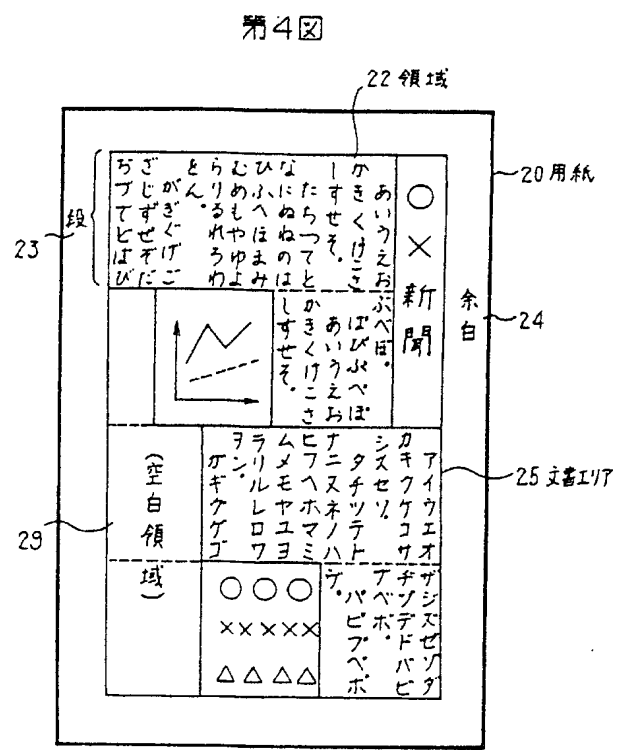 第4図
22 領域
20 用紙
段
23
余白
24
○×新聞
あいうえお
かきくけこさ
しすせそ。
たちつてと
なにぬねのは
ひふへほまみ
むめもやゆよ
らりるれろわ
をん。
がぎぐげご
ざじずぜぞだ
ぢづでどばび
ぶべぼ。
ぱぴぷぺぽ
あいうえお
かきくけこさ
しすせそ。
25 文書エリア
アイウエオ
カキクケコサ
シスセソ。
タチツテト
ナニヌネノハ
ヒフヘホマミ
ムメモヤユヨ
ラリルレロワ
ヲン。
ガギグゲゴ
ザジズゼゾダ
ヂヅデドバビ
ブベボ。
パピプペポ
ヴ。
○○○
×××××
△△△△
(空白領域)
29